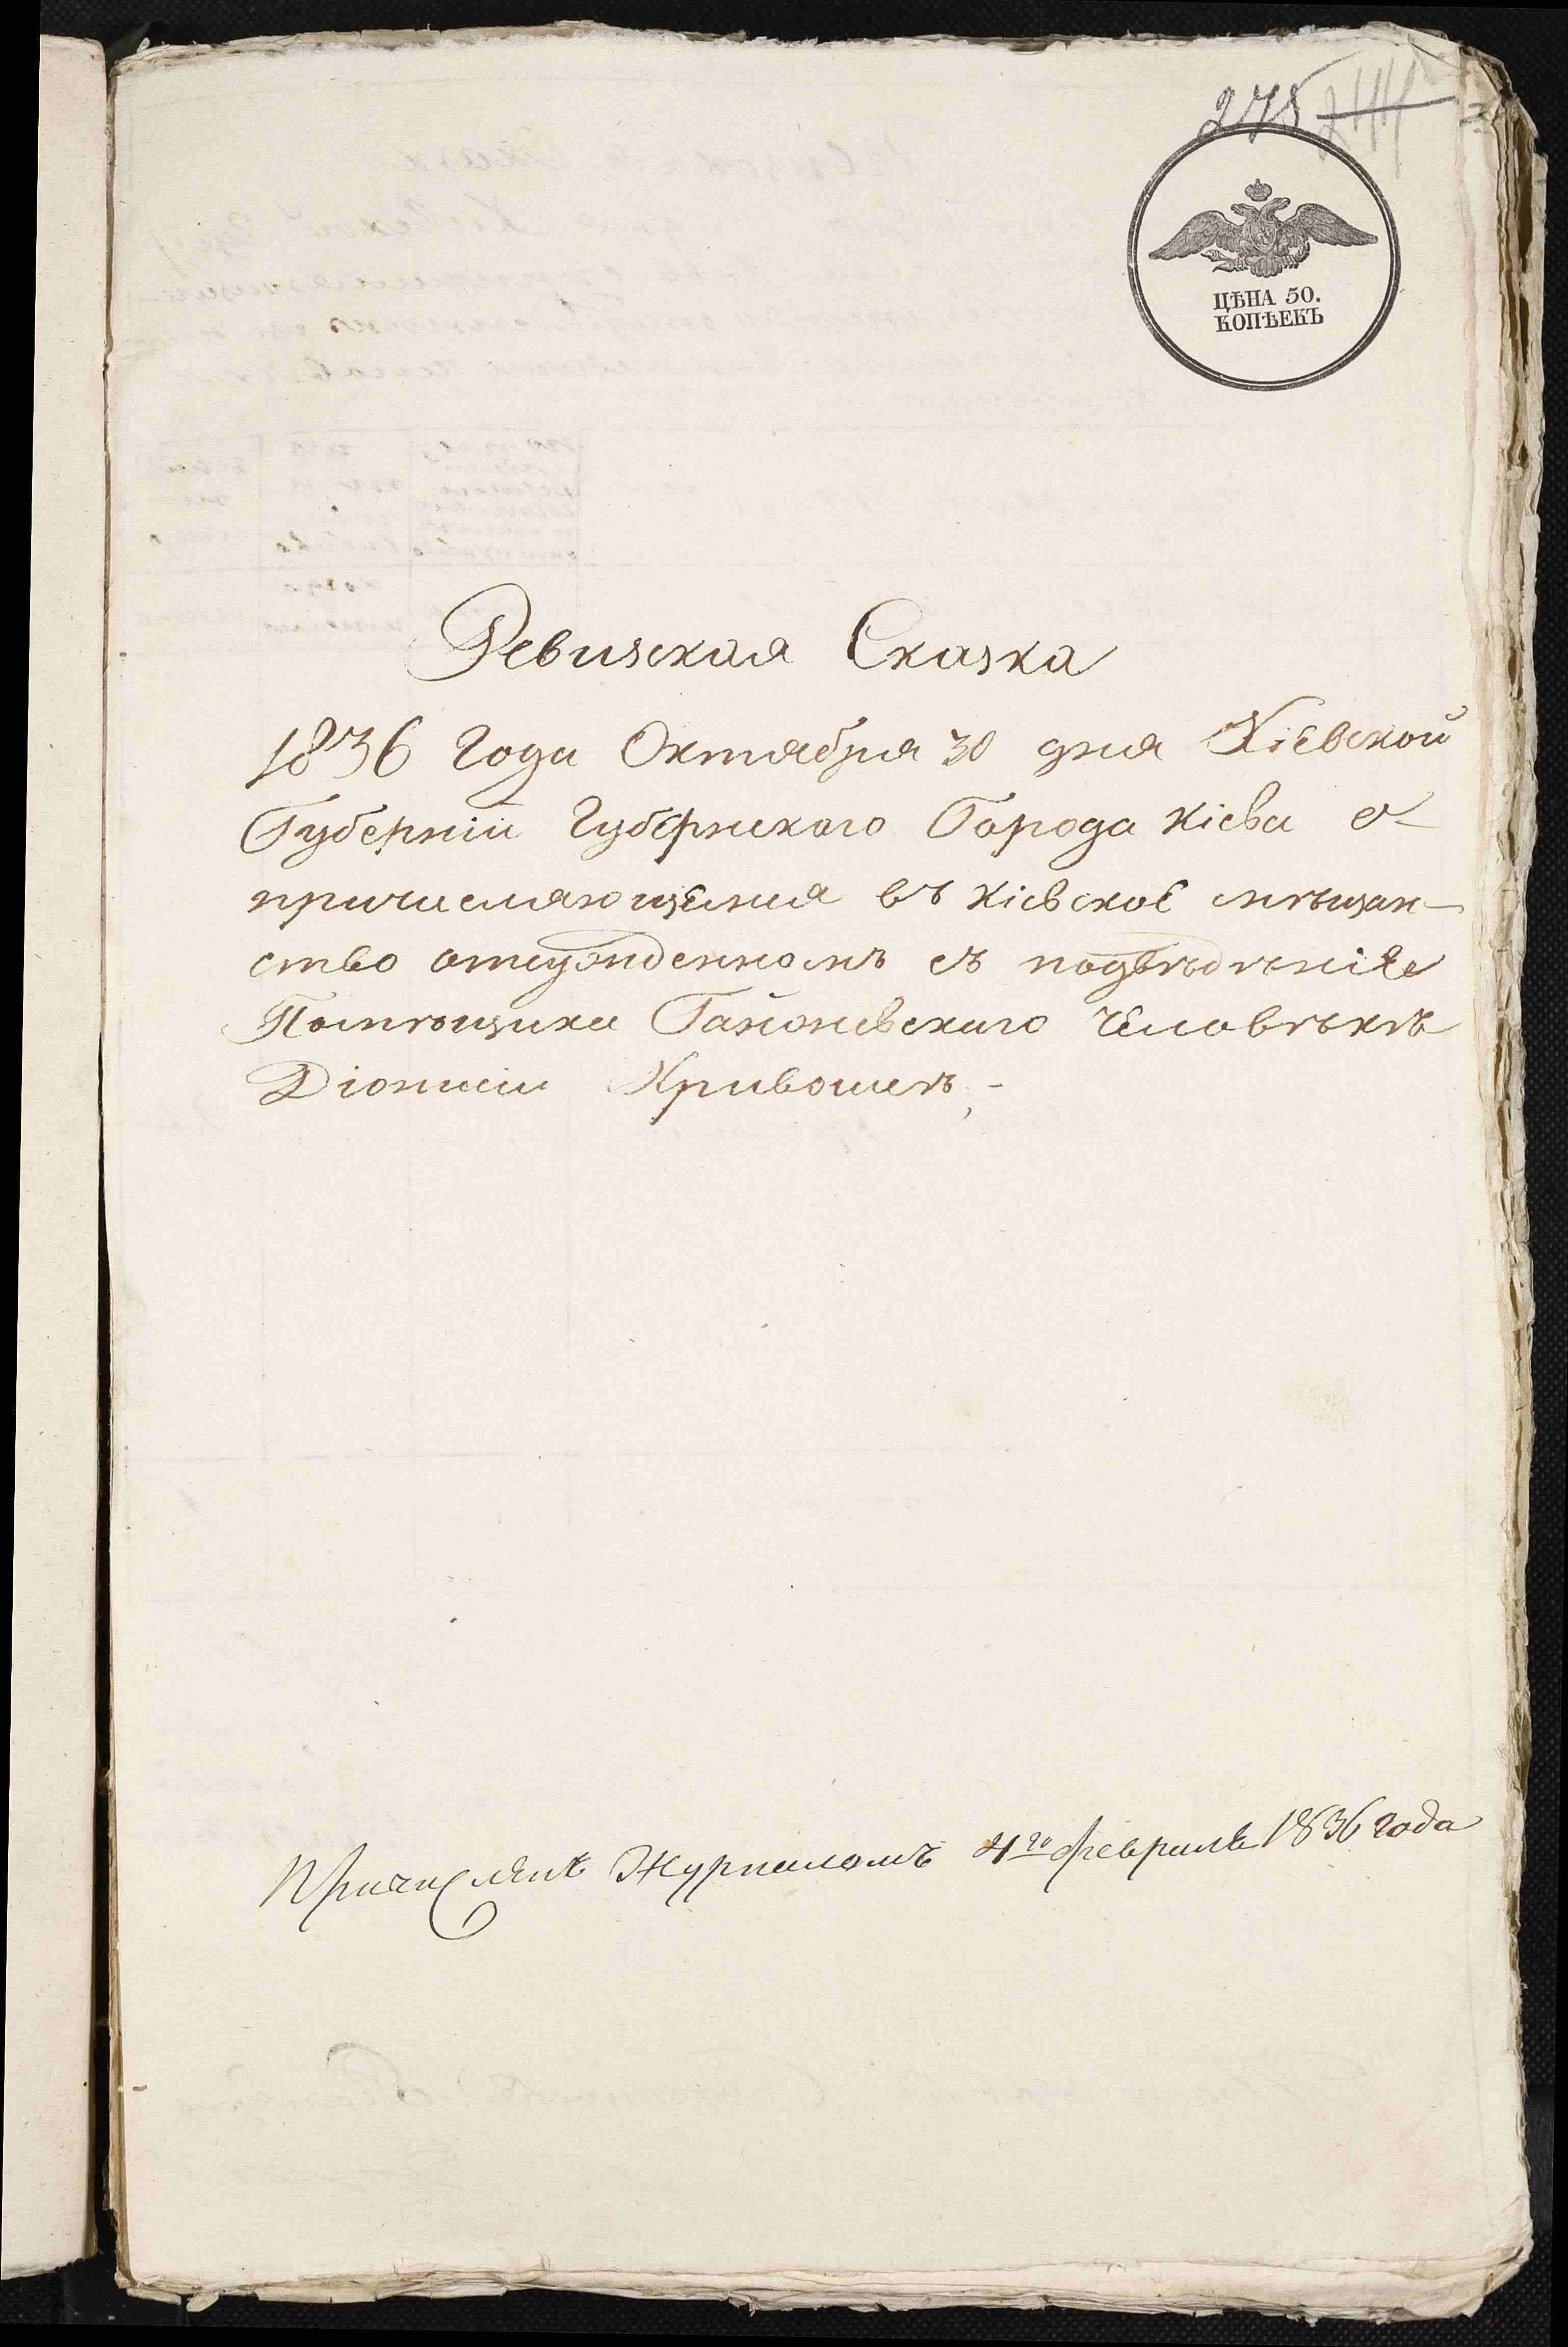 275 244
ЦѢНА 50.
КОПѢЕКЪ
Ревизская Сказка
1836 года Октября 30 дня Кіевской
Губерніи Губернскаго Города Кіева о
причисляющемся въ Кіевское мѣщан-
ство отсужденномъ съ подвѣдѣнія
Помѣщика Гайоневскаго человѣкѣ
Діонисіи Кривошеѣ.-
Причисленъ Журналомъ 4го февраля 1836 года